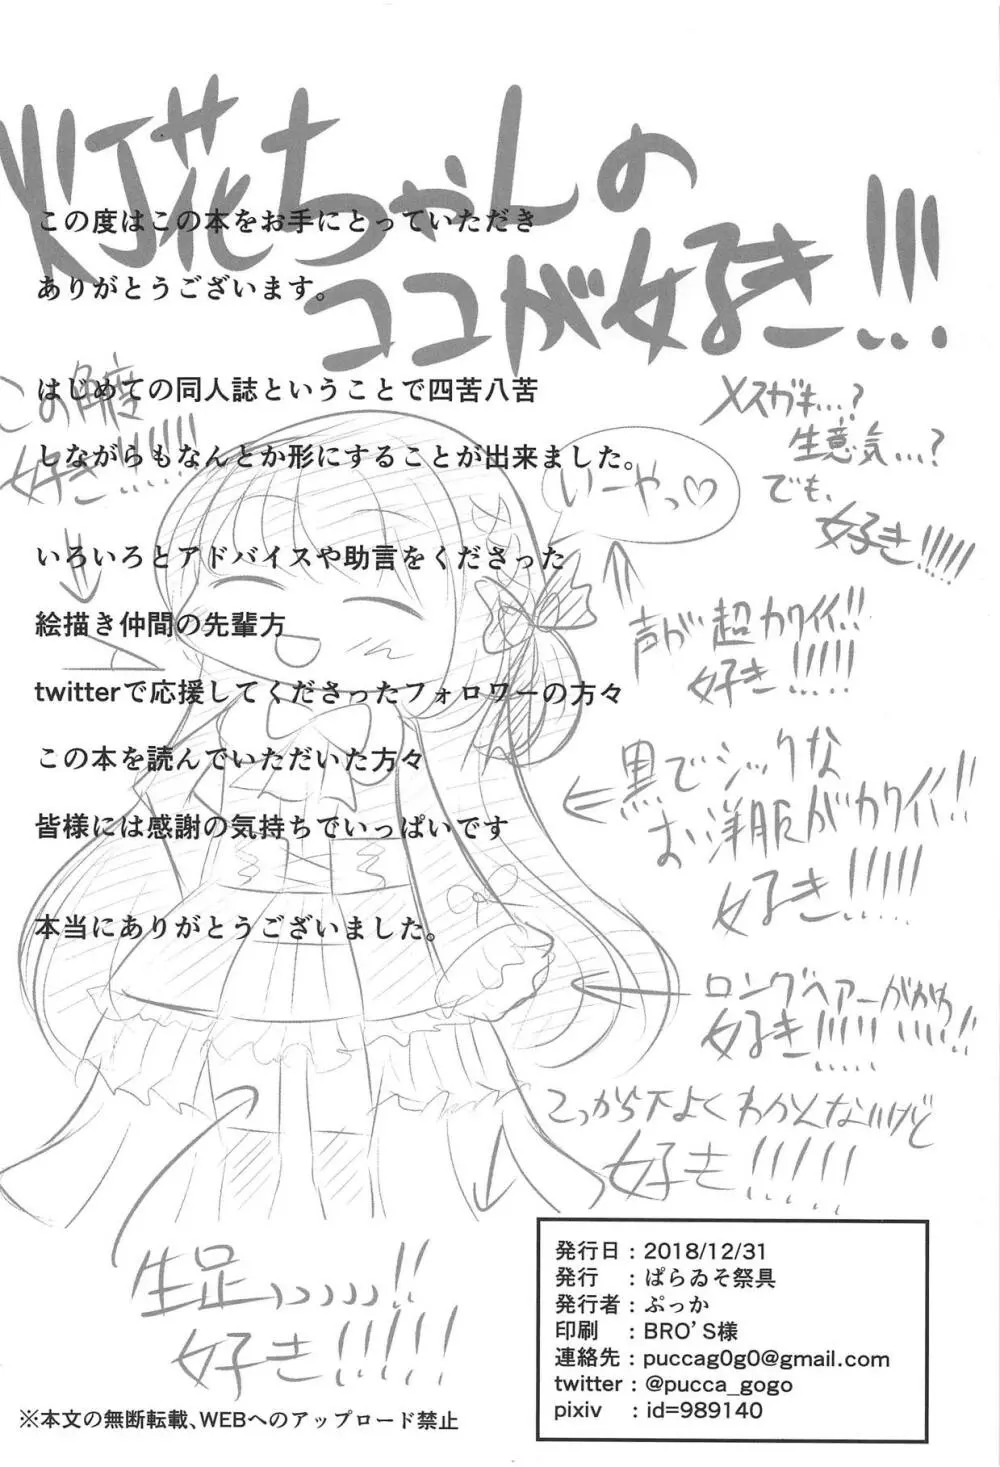 灯花ちゃんの
ココが好き!!!
この度はこの本をお手にとっていただき
ありがとうございます。
はじめての同人誌ということで四苦八苦
しながらもなんとか形にすることが出来ました。
いろいろとアドバイスや助言をくださった
絵描き仲間の先輩方
twitterで応援してくださったフォロワーの方々
この本を読んでいただいた方々
皆様には感謝の気持ちでいっぱいです
本当にありがとうございました。
この角度
好き!!!!!
いーやっ♡
メスガキ...?
生意気...?
でも、
好き!!!!!
声が超カワイイ!!
好き!!!!!
黒でシックな
お洋服がカワイイ!!
好き!!!!!
ロングヘアーがかわ
いい!!
好き!!!!!
こっから下よくわかんないけど
好き!!!!!
生足ヽヽヽヽヽ!!
好き!!!!!
発行日：2018/12/31
発行　：ぱらゐそ祭具
発行者：ぷっか
印刷　：BRO'S様
連絡先：puccag0g0@gmail.com
twitter：@pucca_gogo
pixiv　：id=989140
※本文の無断転載、WEBへのアップロード禁止